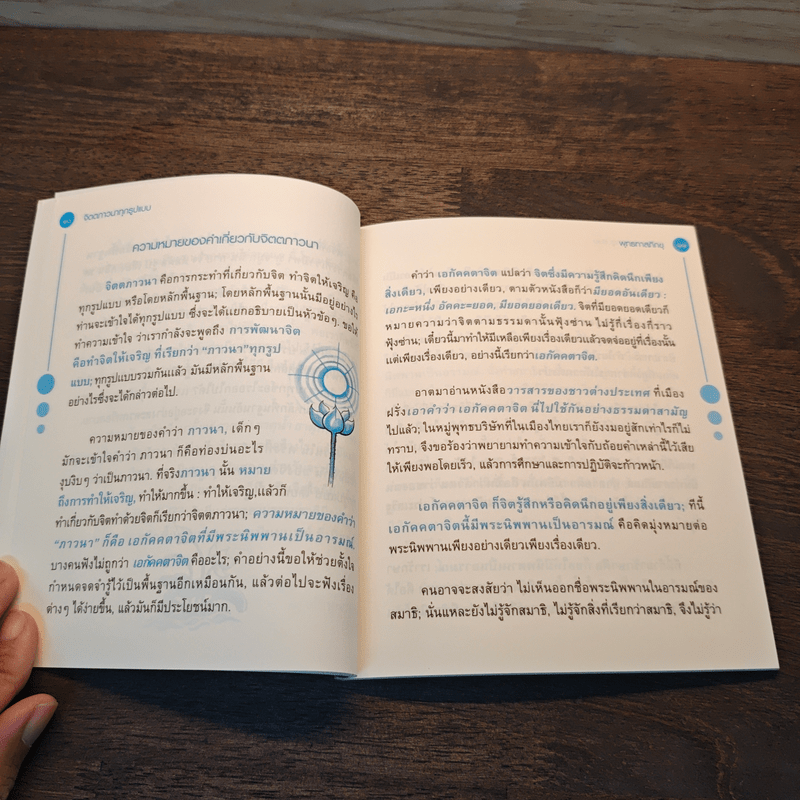 จิตตภาวนาทุกรูปแบบ
ความหมายของคำเกี่ยวกับจิตตภาวนา
จิตตภาวนา คือการกระทำที่เกี่ยวกับจิต ทำจิตให้เจริญ คือ
ทุกรูปแบบ หรือโดยหลักพื้นฐาน; โดยหลักพื้นฐานนั้นมีอยู่อย่างไร
ท่านจะเข้าใจได้ทุกรูปแบบ ซึ่งจะได้แยกอธิบายเป็นหัวข้อๆ. ขอให้
ทำความเข้าใจ ว่าเรากำลังจะพูดถึง การพัฒนาจิต
คือทำจิตให้เจริญ ที่เรียกว่า "ภาวนา"ทุกรูป
แบบ; ทุกรูปแบบรวมกันแล้ว มันมีหลักพื้นฐาน
อย่างไรซึ่งจะได้กล่าวต่อไป.
ความหมายของคำว่า ภาวนา, เด็กๆ
มักจะเข้าใจคำว่า ภาวนา ก็คือท่องบ่นอะไร
งุบงิบๆ ว่าเป็นภาวนา. ที่จริงภาวนา นั้น หมาย
ถึงการทำให้เจริญ, ทำให้มากขึ้น : ทำให้เจริญ,แล้วก็
ทำเกี่ยวกับจิตทำด้วยจิตก็เรียกว่าจิตตภาวนา; ความหมายของคำว่า
"ภาวนา" ก็คือ เอกัคคตาจิตที่มีพระนิพพานเป็นอารมณ์.
บางคนฟังไม่ถูกว่า เอกัคคตาจิต คืออะไร; คำอย่างนี้ขอให้ช่วยตั้งใจ
กำหนดจดจำรู้ไว้เป็นพื้นฐานอีกเหมือนกัน, แล้วต่อไปจะฟังเรื่อง
ต่างๆ ได้ง่ายขึ้น, แล้วมันก็มีประโยชน์มาก.
พุทธทาสภิกขุ
คำว่า เอกัคคตาจิต แปลว่า จิตซึ่งมีความรู้สึกคิดนึกเพียง
สิ่งเดียว, เพียงอย่างเดียว, ตามตัวหนังสือก็ว่ามียอดอันเดียว :
เอกะ=หนึ่ง อัคคะ=ยอด, มียอดยอดเดียว. จิตที่มียอดยอดเดียวก็
หมายความว่าจิตตามธรรมดานั้นฟุ้งซ่าน ไม่รู้กี่เรื่องกี่ราว
ฟุ้งซ่าน; เดี๋ยวนี้มาทำให้มีเหลือเพียงเรื่องเดียวแล้วจดจ่ออยู่ที่เรื่องนั้น
แต่เพียงเรื่องเดียว, อย่างนี้เรียกว่าเอกัคคตาจิต.
อาตมาอ่านหนังสือวารสารของชาวต่างประเทศ ที่เมือง
ฝรั่งเอาคำว่า เอกัคคตาจิต นี่ไปใช้กันอย่างธรรมดาสามัญ
ไปแล้ว; ในหมู่พุทธบริษัทที่ในเมืองไทยเราก็ยังงมอยู่สักเท่าไรก็ไม่
ทราบ, จึงขอร้องว่าพยายามทำความเข้าใจกับถ้อยคำเหล่านี้ไว้เสีย
ให้เพียงพอโดยเร็ว, แล้วการศึกษาและการปฏิบัติจะก้าวหน้า.
เอกัคคตาจิต ก็จิตรู้สึกหรือคิดนึกอยู่เพียงสิ่งเดียว; ทีนี้
เอกัคคตาจิตนี้มีพระนิพพานเป็นอารมณ์ คือคิดมุ่งหมายต่อ
พระนิพพานเพียงอย่างเดียวเพียงเรื่องเดียว.
คนอาจจะสงสัยว่า ไม่เห็นออกชื่อพระนิพพานในอารมณ์ของ
สมาธิ; นั่นแหละยังไม่รู้จักสมาธิ, ไม่รู้จักสิ่งที่เรียกว่าสมาธิ, จึงไม่รู้ว่า